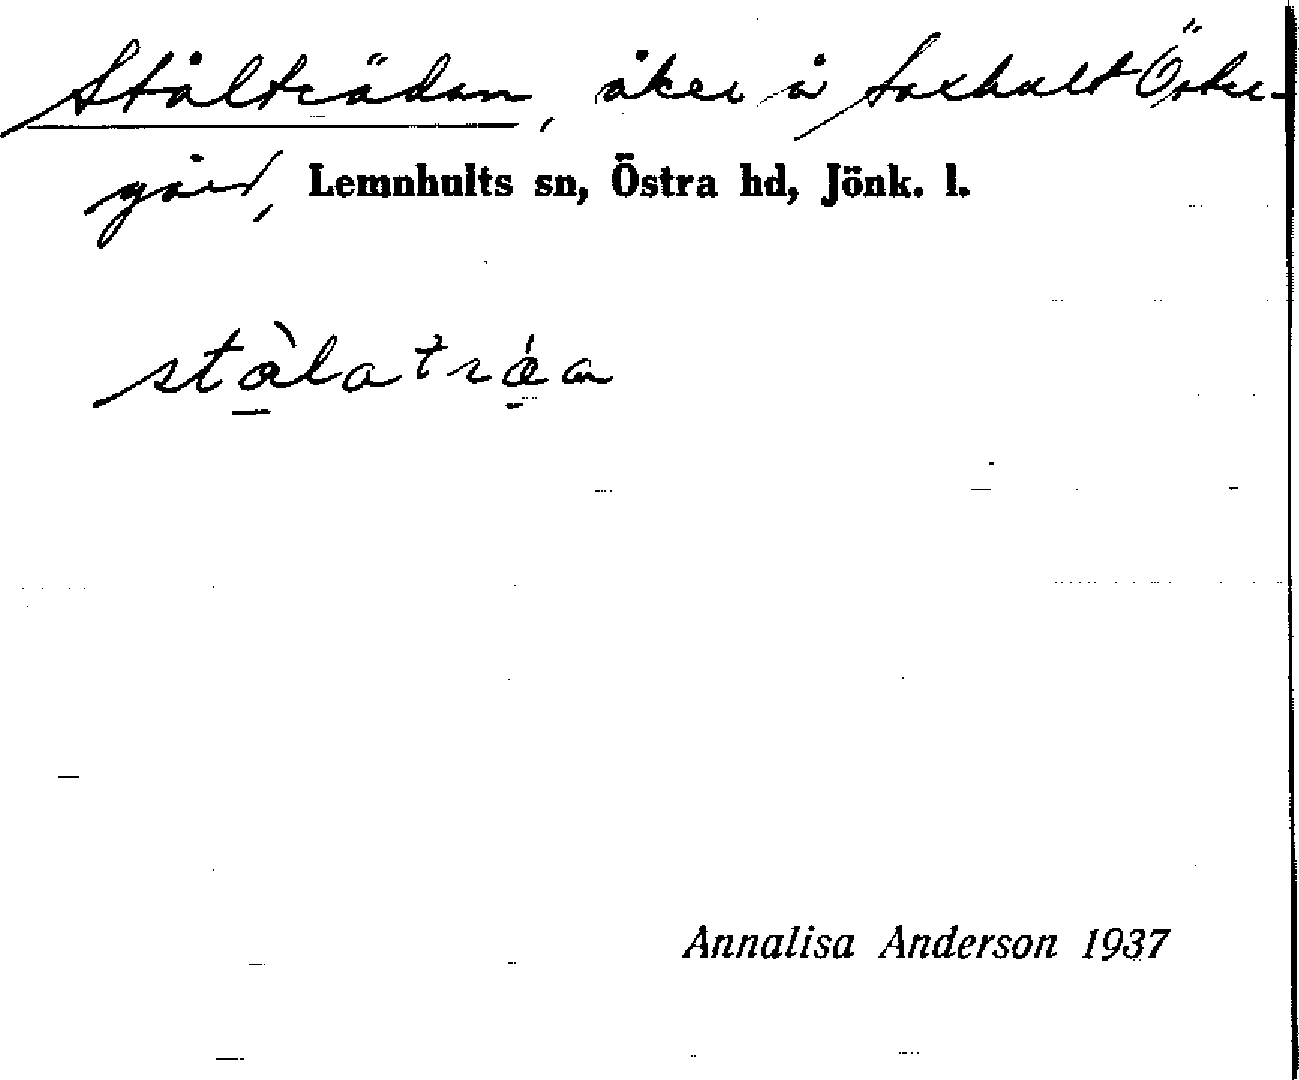 Stålträdan, åker å Saxhult Öster-
gård, Lemnhults sn, Östra hd, Jönk. l.
stålatráa
Annalisa Anderson 1937